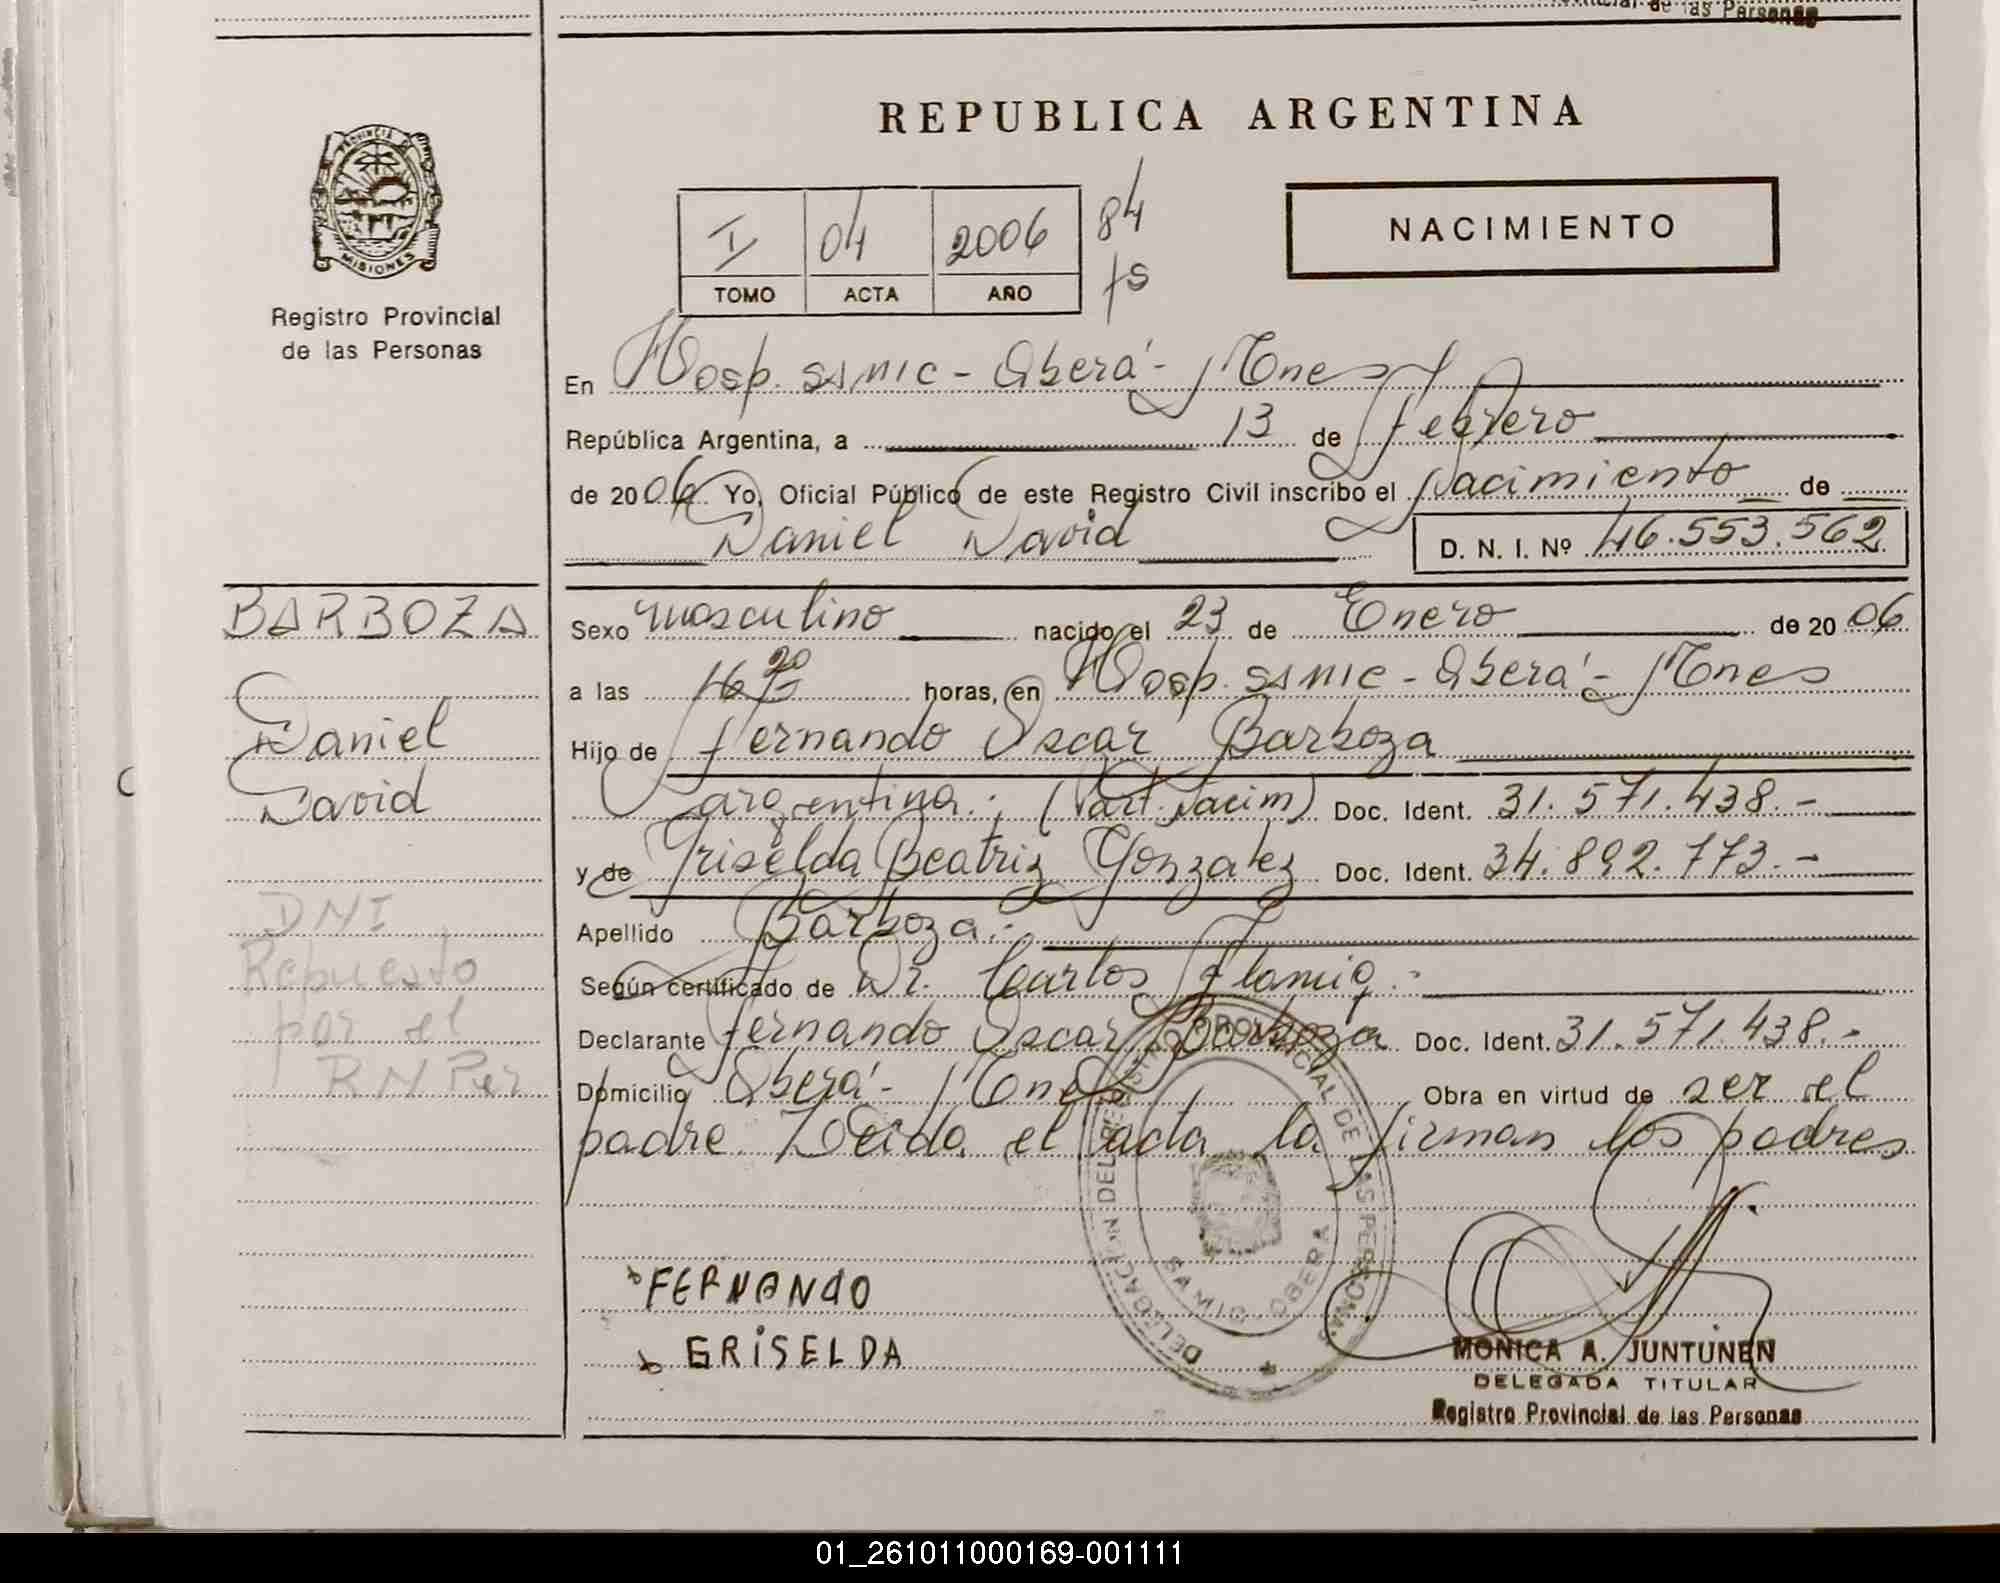 de las Personas
REPUBLICA ARGENTINA
PROVINCIA DE
MISIONES
Registro Provincial
de las Personas
I 04 2006 84
TOMO ACTA AÑO fs
NACIMIENTO
En Hosp. SAMIC - Oberá - Mnes
República Argentina, a 13 de Febrero
de 2006 Yo, Oficial Público de este Registro Civil inscribo el Nacimiento de
Daniel David D. N. I. Nº 46.553.562
BARBOZA
Daniel
David
DNI
Repuesto
por el
RNPer
Sexo masculino nacido el 23 de Enero de 2006
a las 16 20 horas, en Hosp. SAMIC - Oberá - Mnes
Hijo de Fernando Oscar Barboza
argentina.; (Part. Nacim) Doc. Ident. 31.571.438.-
y de Griselda Beatriz Gonzalez Doc. Ident. 34.892.773.-
Apellido Barboza.-
Según certificado de Dr. Carlos
Declarante Fernando Oscar Barboza Doc. Ident. 31.571.438.-
Domicilio Oberá - Mnes Obra en virtud de ser el
padre. Leida el acta la firman los padres
DELEGACION DEL REGISTRO PROVINCIAL DE LAS PERSONAS
SAMIC OBERA
FERNANDO
GRISELDA
MONICA A. JUNTUNEN
DELEGADA TITULAR
Registro Provincial de las Personas
01_261011000169-001111